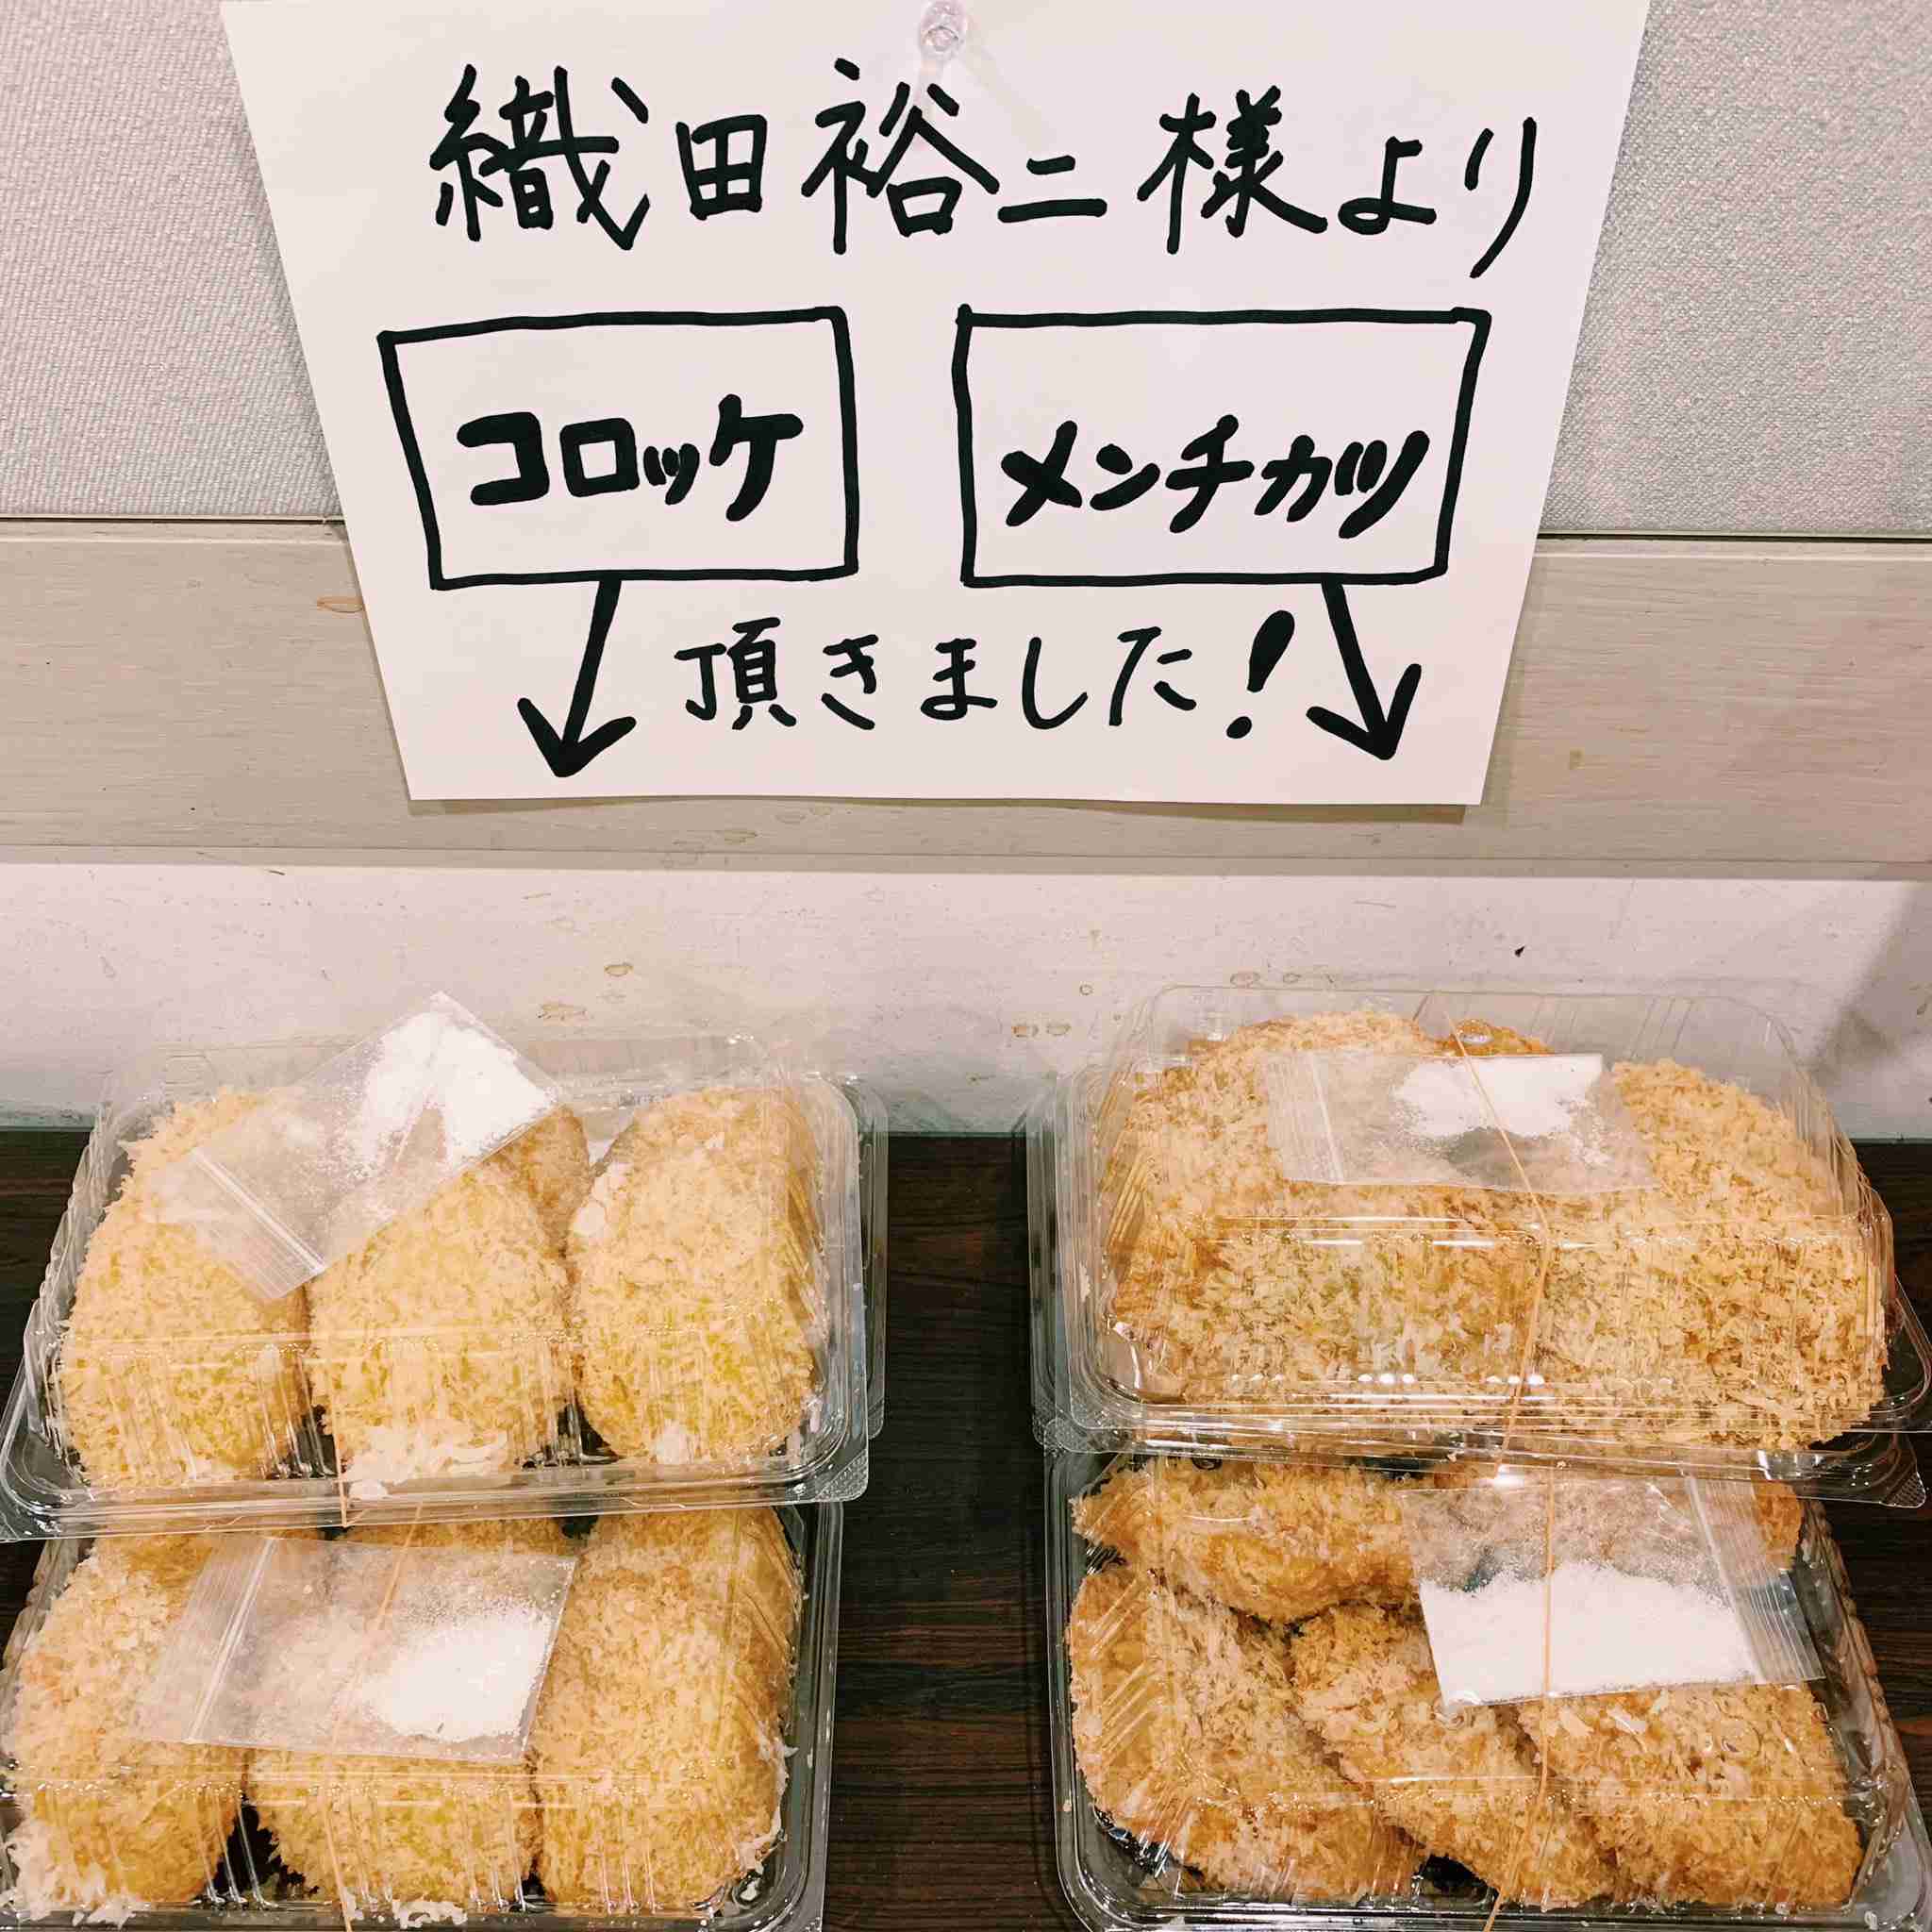 織田裕二様より
コロッケ メンチカツ
頂きました!